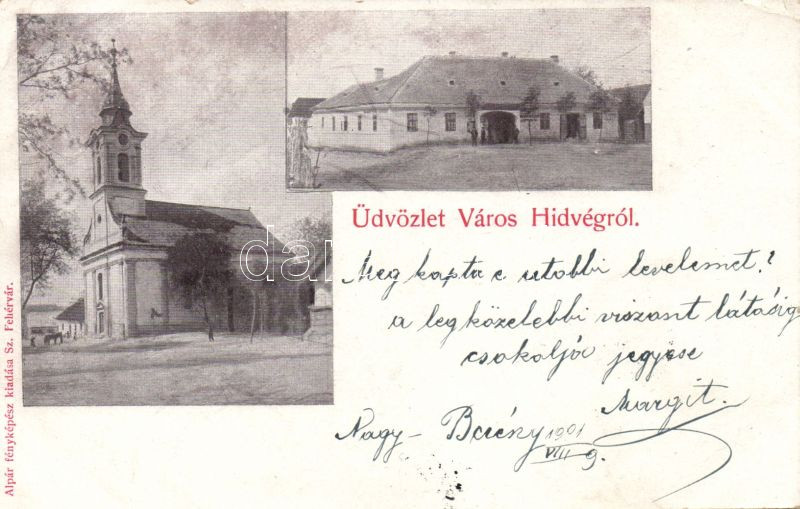 Üdvözlet Város Hidvégről.
Meg kapta e utobbi levelemet?
a legközelebbi viszont látásig
csokolja jegyese
Margit.
Nagy-Berény 1901
VIII 9.
Alpár fényképész kiadása Sz. Fehérvár.